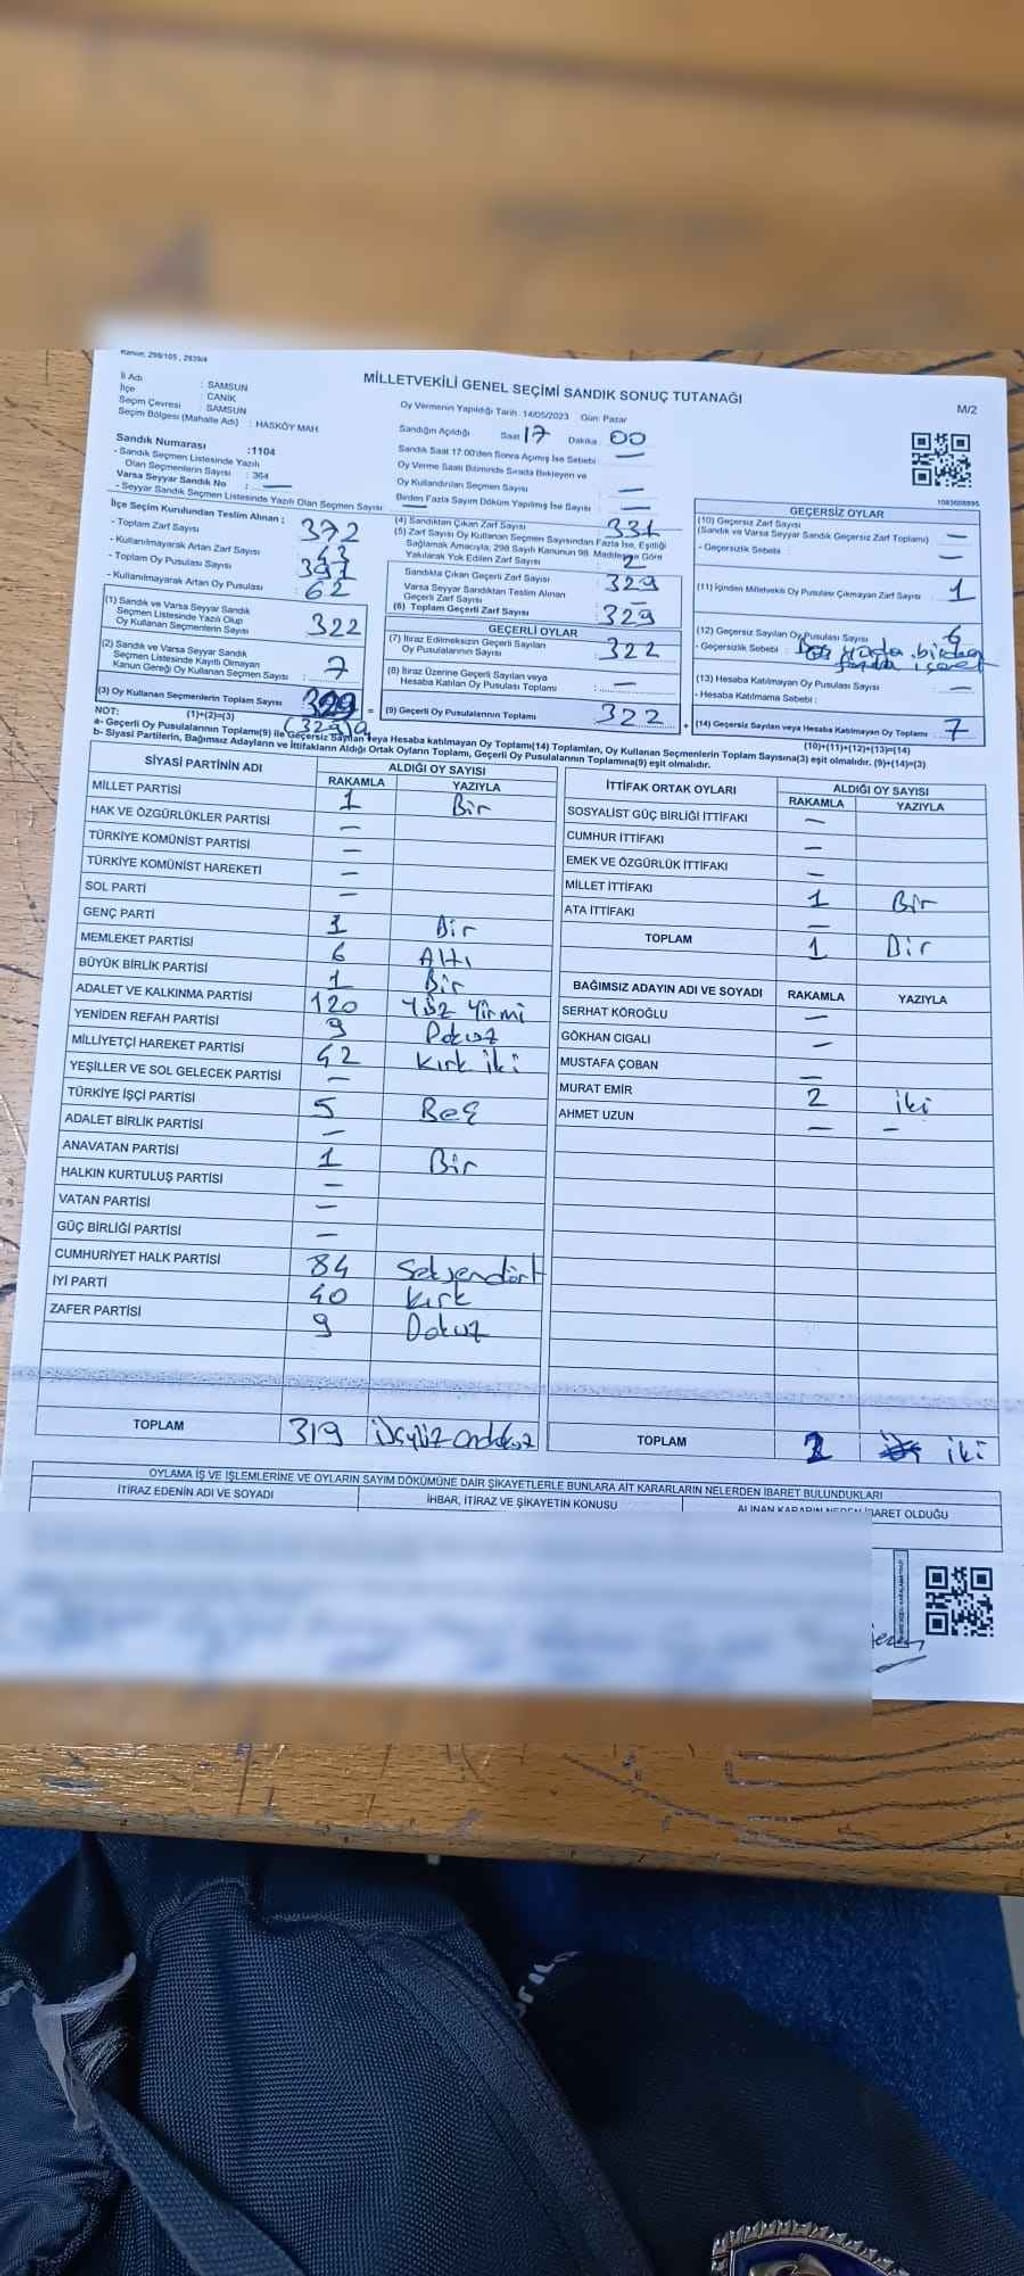 Kanun: 298/105 , 2839/4
MİLLETVEKİLİ GENEL SEÇİMİ SANDIK SONUÇ TUTANAĞI
M/2
İl Adı : SAMSUN
İlçe : CANİK
Seçim Çevresi : SAMSUN
Seçim Bölgesi (Mahalle Adı) : HASKÖY MAH.
Sandık Numarası :1104
- Sandık Seçmen Listesinde Yazılı
Olan Seçmenlerin Sayısı : 364
Varsa Seyyar Sandık No : —
- Seyyar Sandık Seçmen Listesinde Yazılı Olan Seçmen Sayısı —
Oy Vermenin Yapıldığı Tarih: 14/05/2023 Gün: Pazar
Sandığın Açıldığı Saat 17 Dakika 00
Sandık Saat 17:00'den Sonra Açılmış İse Sebebi —
Oy Verme Saati Bitiminde Sırada Bekleyen ve
Oy Kullandırılan Seçmen Sayısı —
Birden Fazla Sayım Döküm Yapılmış İse Sayısı —
1083608995
İlçe Seçim Kurulundan Teslim Alınan :
- Toplam Zarf Sayısı 372
- Kullanılmayarak Artan Zarf Sayısı 43
- Toplam Oy Pusulası Sayısı 391
- Kullanılmayarak Artan Oy Pusulası 62
(1) Sandık ve Varsa Seyyar Sandık
Seçmen Listesinde Yazılı Olup
Oy Kullanan Seçmenlerin Sayısı 322
(2) Sandık ve Varsa Seyyar Sandık
Seçmen Listesinde Kayıtlı Olmayan
Kanun Gereği Oy Kullanan Seçmen Sayısı : 7
(3) Oy Kullanan Seçmenlerin Toplam Sayısı 329
(1)+(2)=(3) (329)
(4) Sandıktan Çıkan Zarf Sayısı 331
(5) Zarf Sayısı Oy Kullanan Seçmen Sayısından Fazla İse, Eşitliği
Sağlamak Amacıyla, 298 Sayılı Kanunun 98. Maddesine Göre
Yakılarak Yok Edilen Zarf Sayısı 2
Sandıkta Çıkan Geçerli Zarf Sayısı : 329
Varsa Seyyar Sandıktan Teslim Alınan
Geçerli Zarf Sayısı : —
(6) Toplam Geçerli Zarf Sayısı : 329
GEÇERLİ OYLAR
(7) İtiraz Edilmeksizin Geçerli Sayılan
Oy Pusulalarının Sayısı : 322
(8) İtiraz Üzerine Geçerli Sayılan veya
Hesaba Katılan Oy Pusulası Toplamı : —
(9) Geçerli Oy Pusulalarının Toplamı 322
GEÇERSİZ OYLAR
(10) Geçersiz Zarf Sayısı
(Sandık ve Varsa Seyyar Sandık Geçersiz Zarf Toplamı) —
- Geçersizlik Sebebi : —
(11) İçinden Milletvekili Oy Pusulası Çıkmayan Zarf Sayısı 1
(12) Geçersiz Sayılan Oy Pusulası Sayısı 6
- Geçersizlik Sebebi : yada birden
fazla işaret
(13) Hesaba Katılmayan Oy Pusulası Sayısı —
- Hesaba Katılmama Sebebi :
(14) Geçersiz Sayılan veya Hesaba Katılmayan Oy Toplamı 7
(10)+(11)+(12)+(13)=(14)
NOT:
a- Geçerli Oy Pusulalarının Toplamı(9) ile Geçersiz Sayılan veya Hesaba katılmayan Oy Toplamı(14) Toplamları, Oy Kullanan Seçmenlerin Toplam Sayısına(3) eşit olmalıdır. (9)+(14)=(3)
b- Siyasi Partilerin, Bağımsız Adayların ve İttifakların Aldığı Ortak Oyların Toplamı, Geçerli Oy Pusulalarının Toplamına(9) eşit olmalıdır.
SİYASİ PARTİNİN ADI ALDIĞI OY SAYISI
RAKAMLA YAZIYLA
MİLLET PARTİSİ 1 Bir
HAK VE ÖZGÜRLÜKLER PARTİSİ —
TÜRKİYE KOMÜNİST PARTİSİ —
TÜRKİYE KOMÜNİST HAREKETİ —
SOL PARTİ —
GENÇ PARTİ 1 Bir
MEMLEKET PARTİSİ 6 Altı
BÜYÜK BİRLİK PARTİSİ 1 Bir
ADALET VE KALKINMA PARTİSİ 120 Yüz Yirmi
YENİDEN REFAH PARTİSİ 9 Dokuz
MİLLİYETÇİ HAREKET PARTİSİ 42 Kırk iki
YEŞİLLER VE SOL GELECEK PARTİSİ —
TÜRKİYE İŞÇİ PARTİSİ 5 Beş
ADALET BİRLİK PARTİSİ —
ANAVATAN PARTİSİ 1 Bir
HALKIN KURTULUŞ PARTİSİ —
VATAN PARTİSİ —
GÜÇ BİRLİĞİ PARTİSİ —
CUMHURİYET HALK PARTİSİ 84 Seksendört
İYİ PARTİ 40 Kırk
ZAFER PARTİSİ 9 Dokuz
TOPLAM 319 üçyüz ondokuz
İTTİFAK ORTAK OYLARI ALDIĞI OY SAYISI
RAKAMLA YAZIYLA
SOSYALİST GÜÇ BİRLİĞİ İTTİFAKI —
CUMHUR İTTİFAKI —
EMEK VE ÖZGÜRLÜK İTTİFAKI —
MİLLET İTTİFAKI 1 Bir
ATA İTTİFAKI —
TOPLAM 1 Bir
BAĞIMSIZ ADAYIN ADI VE SOYADI RAKAMLA YAZIYLA
SERHAT KÖROĞLU —
GÖKHAN CIGALI —
MUSTAFA ÇOBAN —
MURAT EMİR 2 iki
AHMET UZUN — —
TOPLAM 2 iki
OYLAMA İŞ VE İŞLEMLERİNE VE OYLARIN SAYIM DÖKÜMÜNE DAİR ŞİKAYETLERLE BUNLARA AİT KARARLARIN NELERDEN İBARET BULUNDUKLARI
İTİRAZ EDENİN ADI VE SOYADI İHBAR, İTİRAZ VE ŞİKAYETİN KONUSU ALINAN KARARIN NEDEN İBARET OLDUĞU